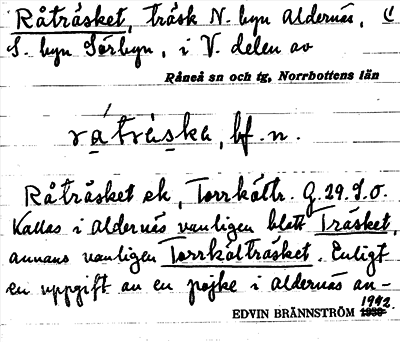 Råträsket, träsk N. byn Aldernäs,
S. byn Sörbyn, i V. delen av
Råneå sn och tg, Norrbottens län
rátrȧska, bf. n.
Råträsket ek, Torrkåltr. G. 29. S.O.
Kallas i Aldernäs vanligen blott Träsket,
annars vanligen Torrkålträsket. Enligt
en uppgift av en pojke i Aldernäs an-
EDVIN BRÄNNSTRÖM 1942